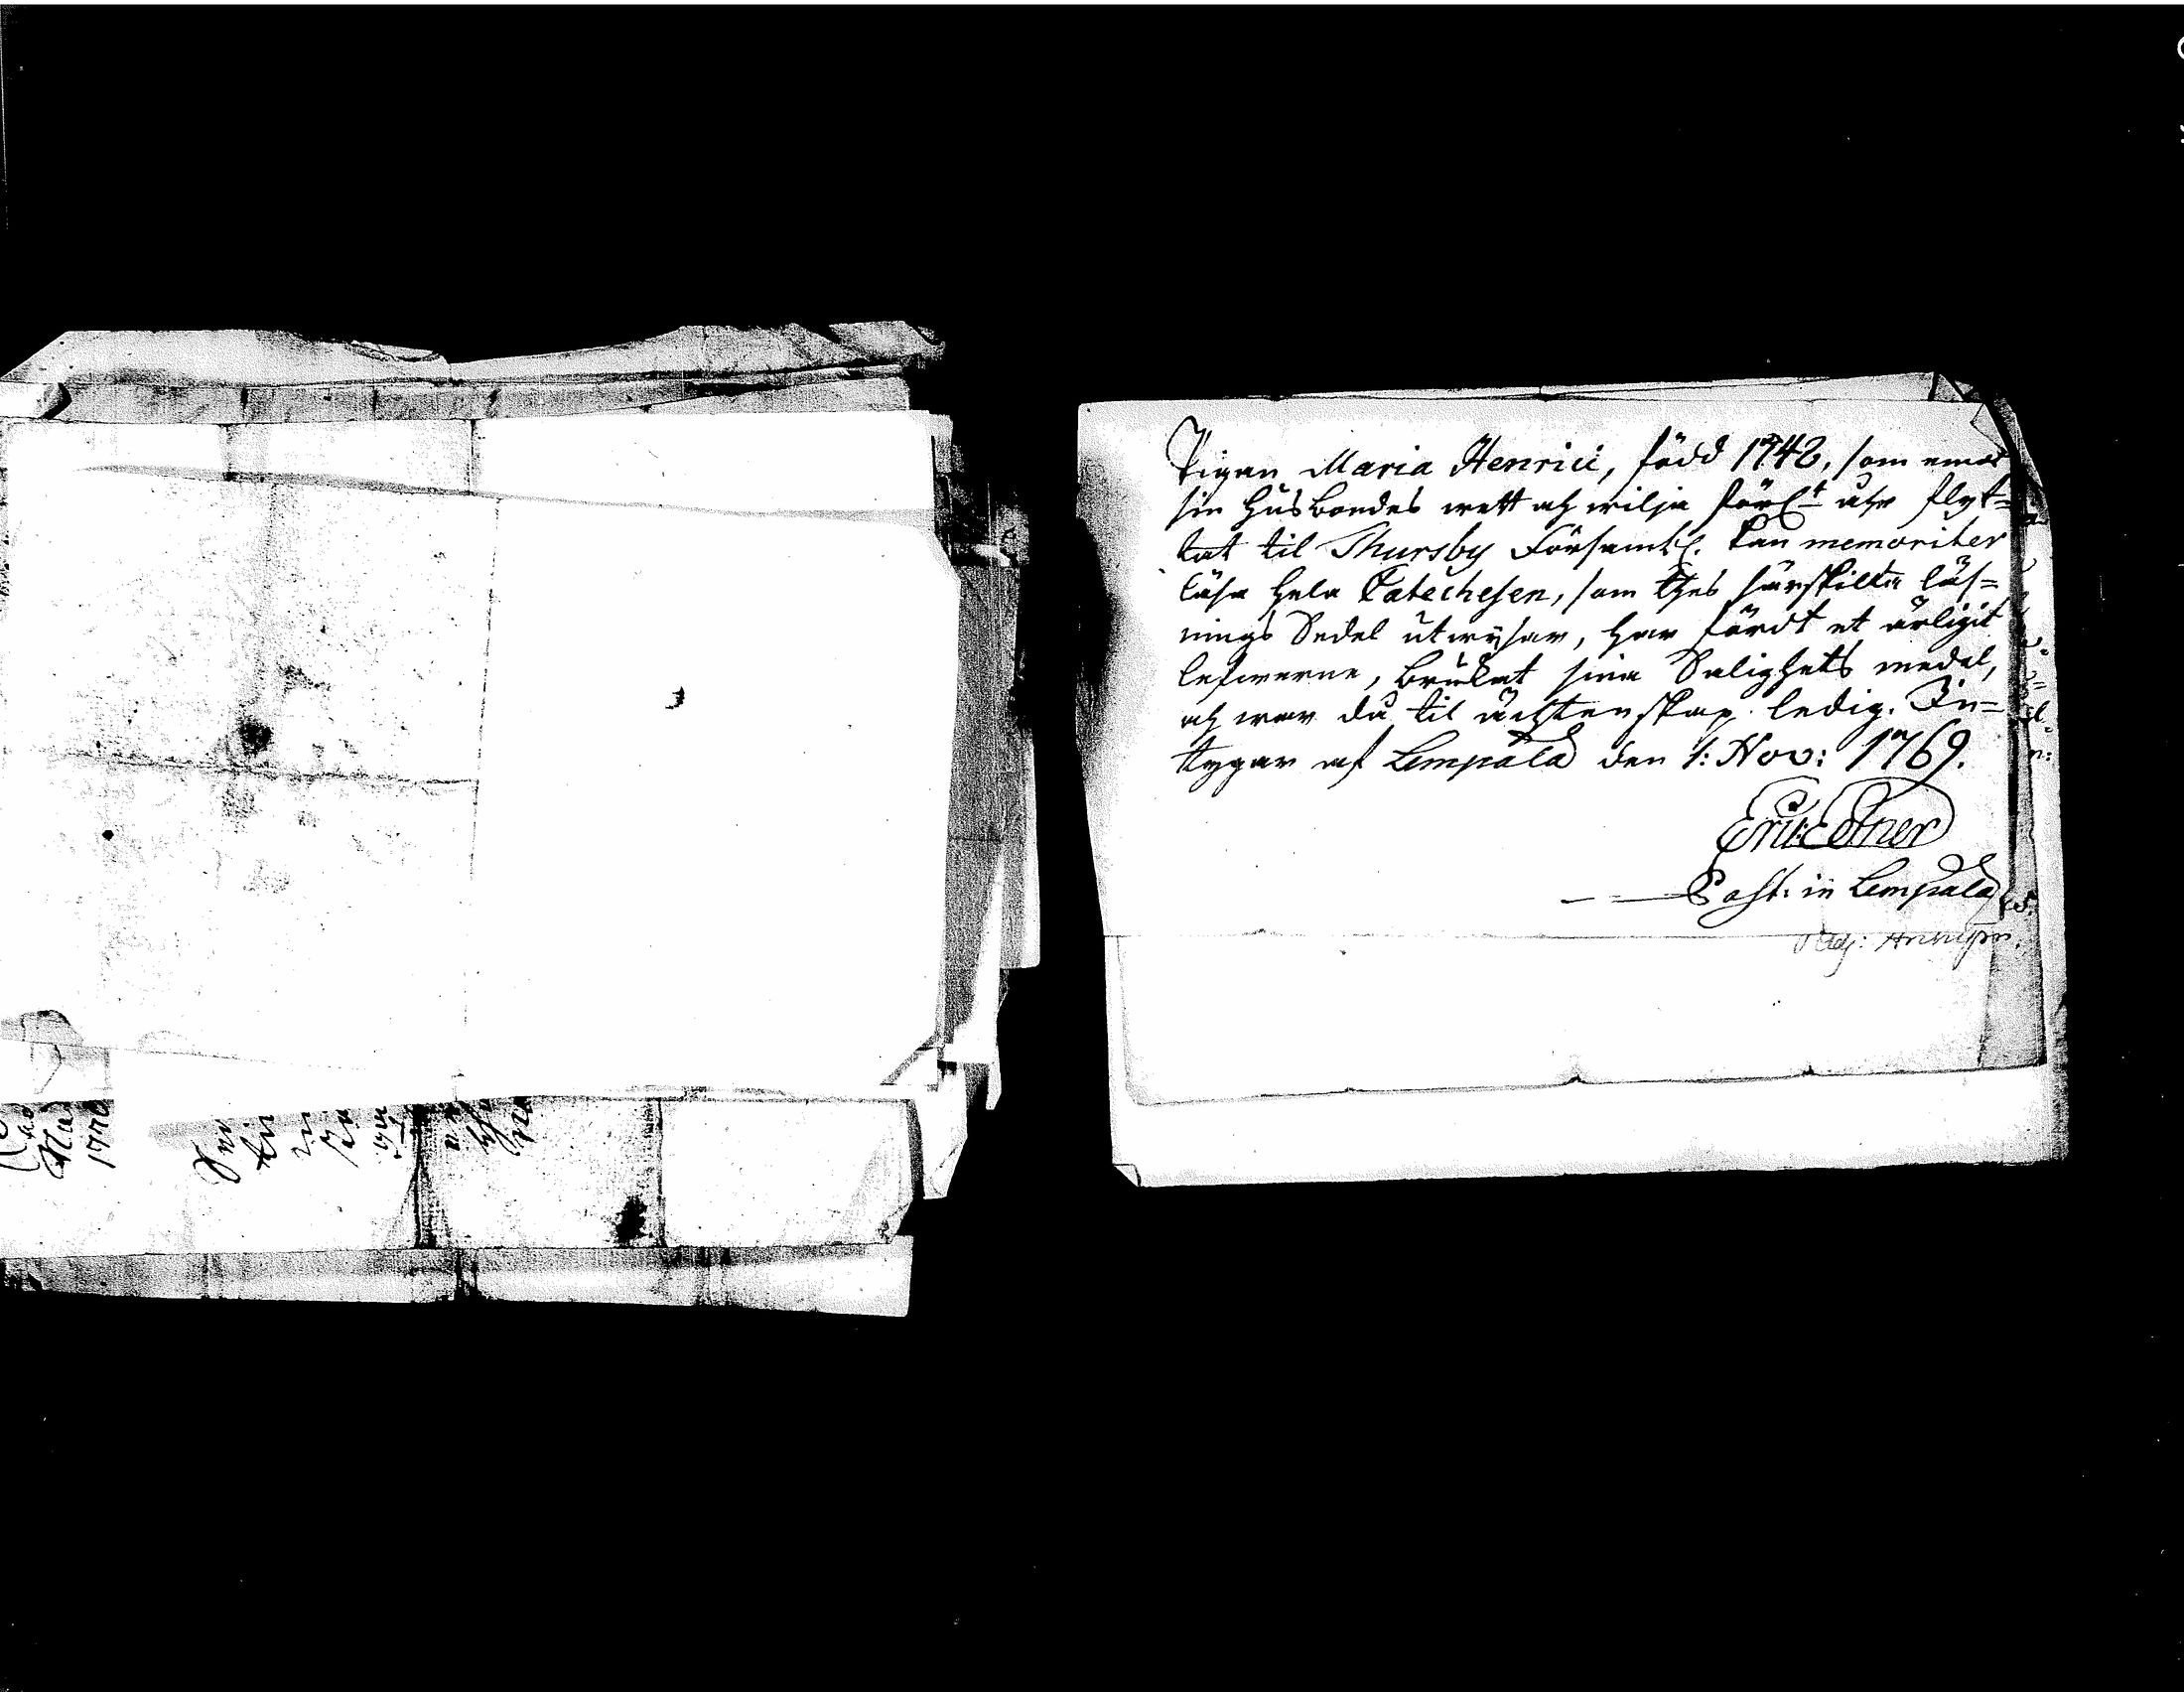 Pigan Maria Henrici, född 1748, som emot
sin Husbondes wett och wilja förl:t åhr flyt=
tat til Thursby Församl. kan memoriter
läsa hela Catechesen, som thes särskilta läs=
nings Sedel utwijsar, har fördt et ärligit
lefwerne, brukat sina Salighets medel,
och war då til ächtenskap ledig. In=
tygar af Lempäla den 1: Nov: 1769.
Eric: Edner
Past: in Lempäla
1770